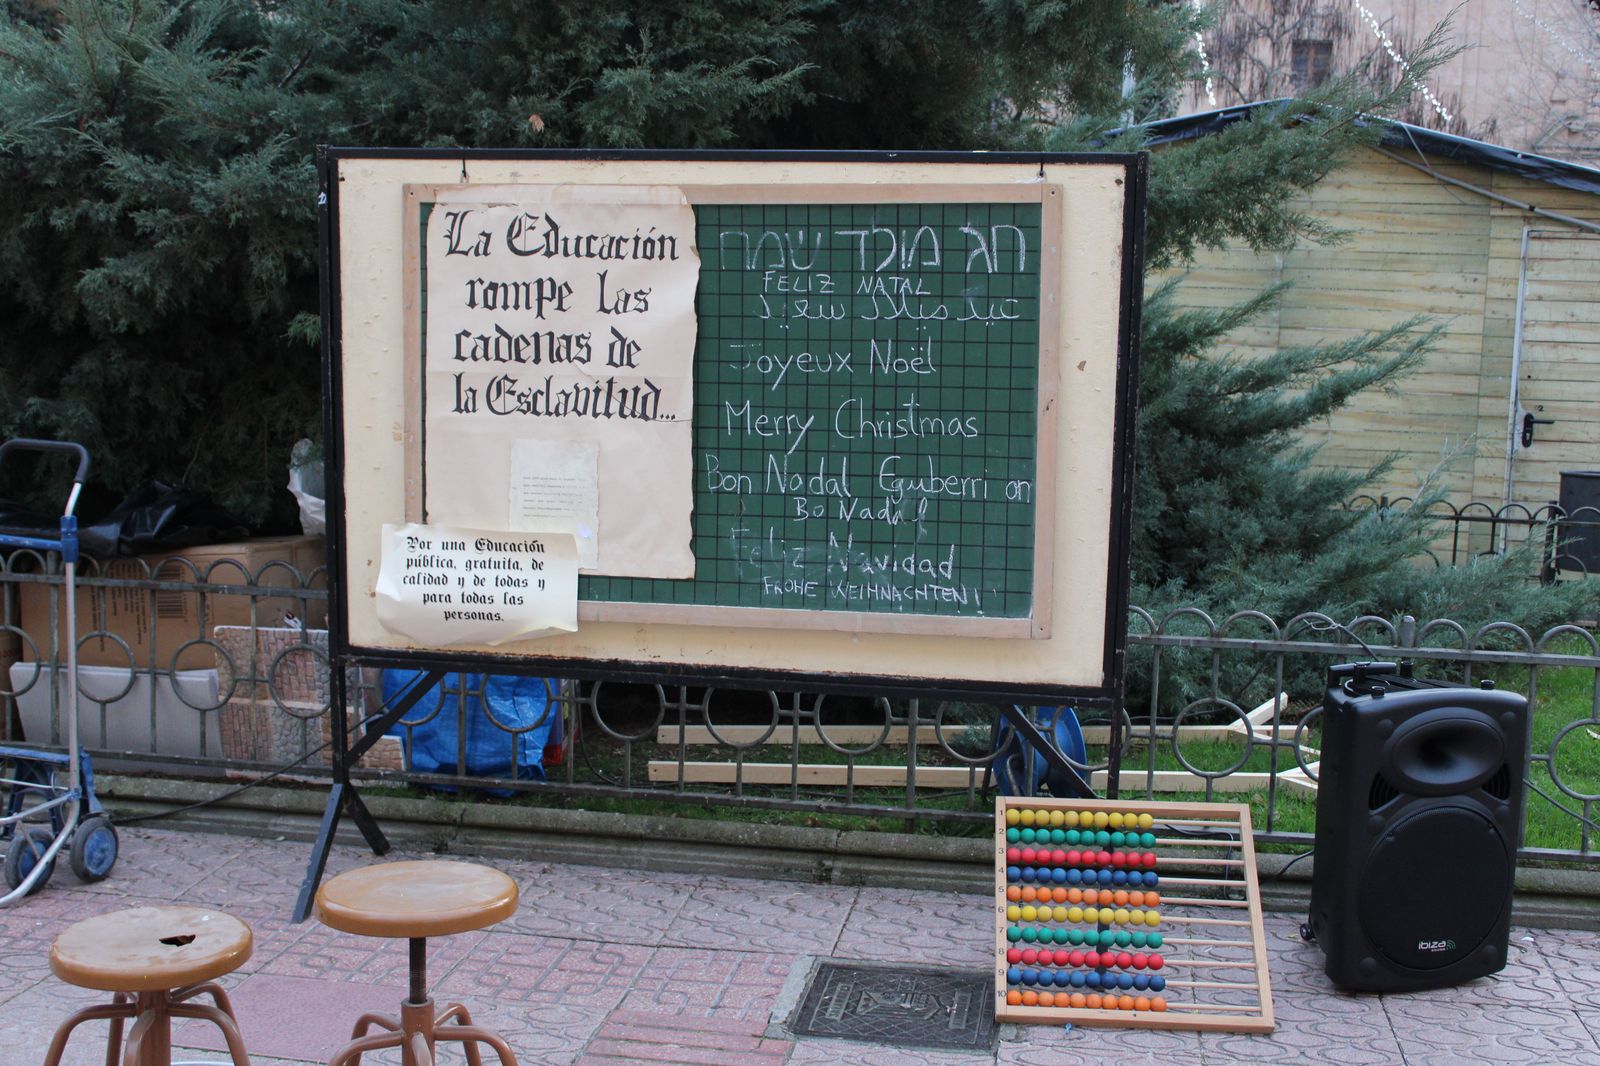 La Educación
rompe las
cadenas de
la Esclavitud...
Por una Educación
pública, gratuita, de
calidad y de todas y
para todas las
personas.
חג מולד שמח
FELIZ NATAL
عيد ميلاد سعيد
Joyeux Noël
Merry Christmas
Bon Nadal Eguberri on
Bo Nadal
Feliz Navidad
FROHE WEIHNACHTEN!
1
2
3
4
5
6
7
8
9
10
ibiza